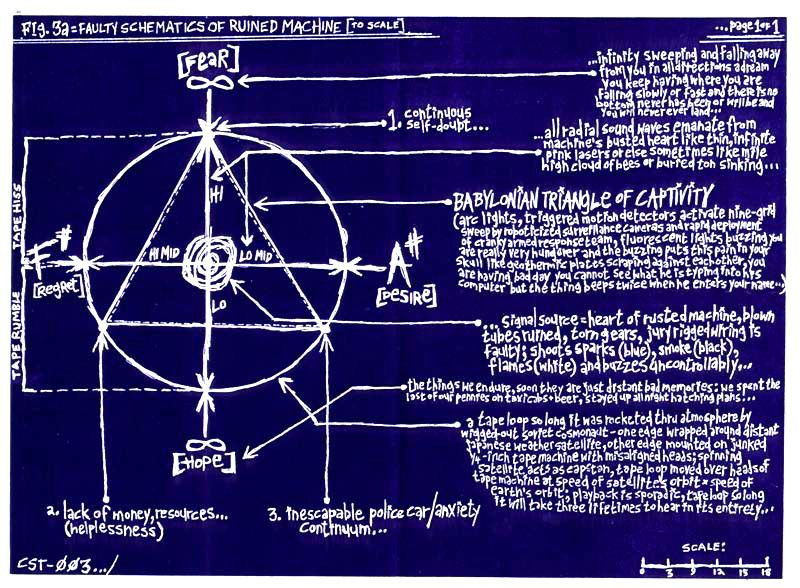 FIG. 3a = FAULTY SCHEMATICS OF RUINED MACHINE [TO SCALE]
...page 1 of 1
[FEAR]
∞
...infinity sweeping and falling away
from you in all directions a dream
you keep having where you are
falling slowly or fast and there is no
bottom never has been or will be and
you will never ever land...
1. continuous
self-doubt...
...all radial sound waves emanate from
machine's busted heart like thin, infinite
pink lasers or else sometimes like mile
high cloud of bees or buried ton sinking...
TAPE HISS
HI
BABYLONIAN TRIANGLE OF CAPTIVITY
(arc lights, triggered motion detectors activate nine-grid
sweep by roboticized surveillance cameras and rapid deployment
of cranky armed response team, fluorescent lights buzzing you
are really very hungover and the buzzing puts this pain in your
skull like geothermic plates scraping against each other, you
are having bad day you cannot see what he is typing into his
computer but the thing beeps twice when he enters your name...)
F#
[REGRET]
HI MID
LO MID
A#
[DESIRE]
LO
TAPE RUMBLE
...signal source = heart of rusted machine, blown
tubes ruined, torn gears, jury rigged wiring is
faulty; shoots sparks (blue), smoke (black),
flames (white) and buzzes uncontrollably...
the things we endure, soon they are just distant bad memories: we spent the
last of our pennies on taxicabs + beer, stayed up all night hatching plans...
∞
[HOPE]
a tape loop so long it was rocketed thru atmosphere by
wigged-out soviet cosmonaut - one edge wrapped around distant
japanese weather satellite, other edge mounted on junked
1/4-inch tape machine with misaligned heads; spinning
satellite acts as capstan, tape loop moved over heads of
tape machine at speed of satellite's orbit × speed of
earth's orbit; playback is sporadic, tape loop so long
it will take three lifetimes to hear in its entirety...
2. lack of money, resources...
(helplessness)
3. inescapable police car/anxiety
continuum...
CST-003.../
SCALE:
0 3 9 12 15 18